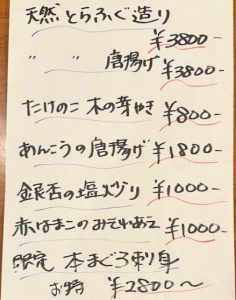 天然とらふぐ造り
¥3800-
〃 〃 唐揚げ
¥3800-
たけのこ 木の芽やき ¥800-
あんこうの唐揚げ ¥1800-
銀杏の塩炒り ¥1000-
赤はまこのみそれあえ ¥1000-
限定 本まぐろ刺身
お得 ¥2800～